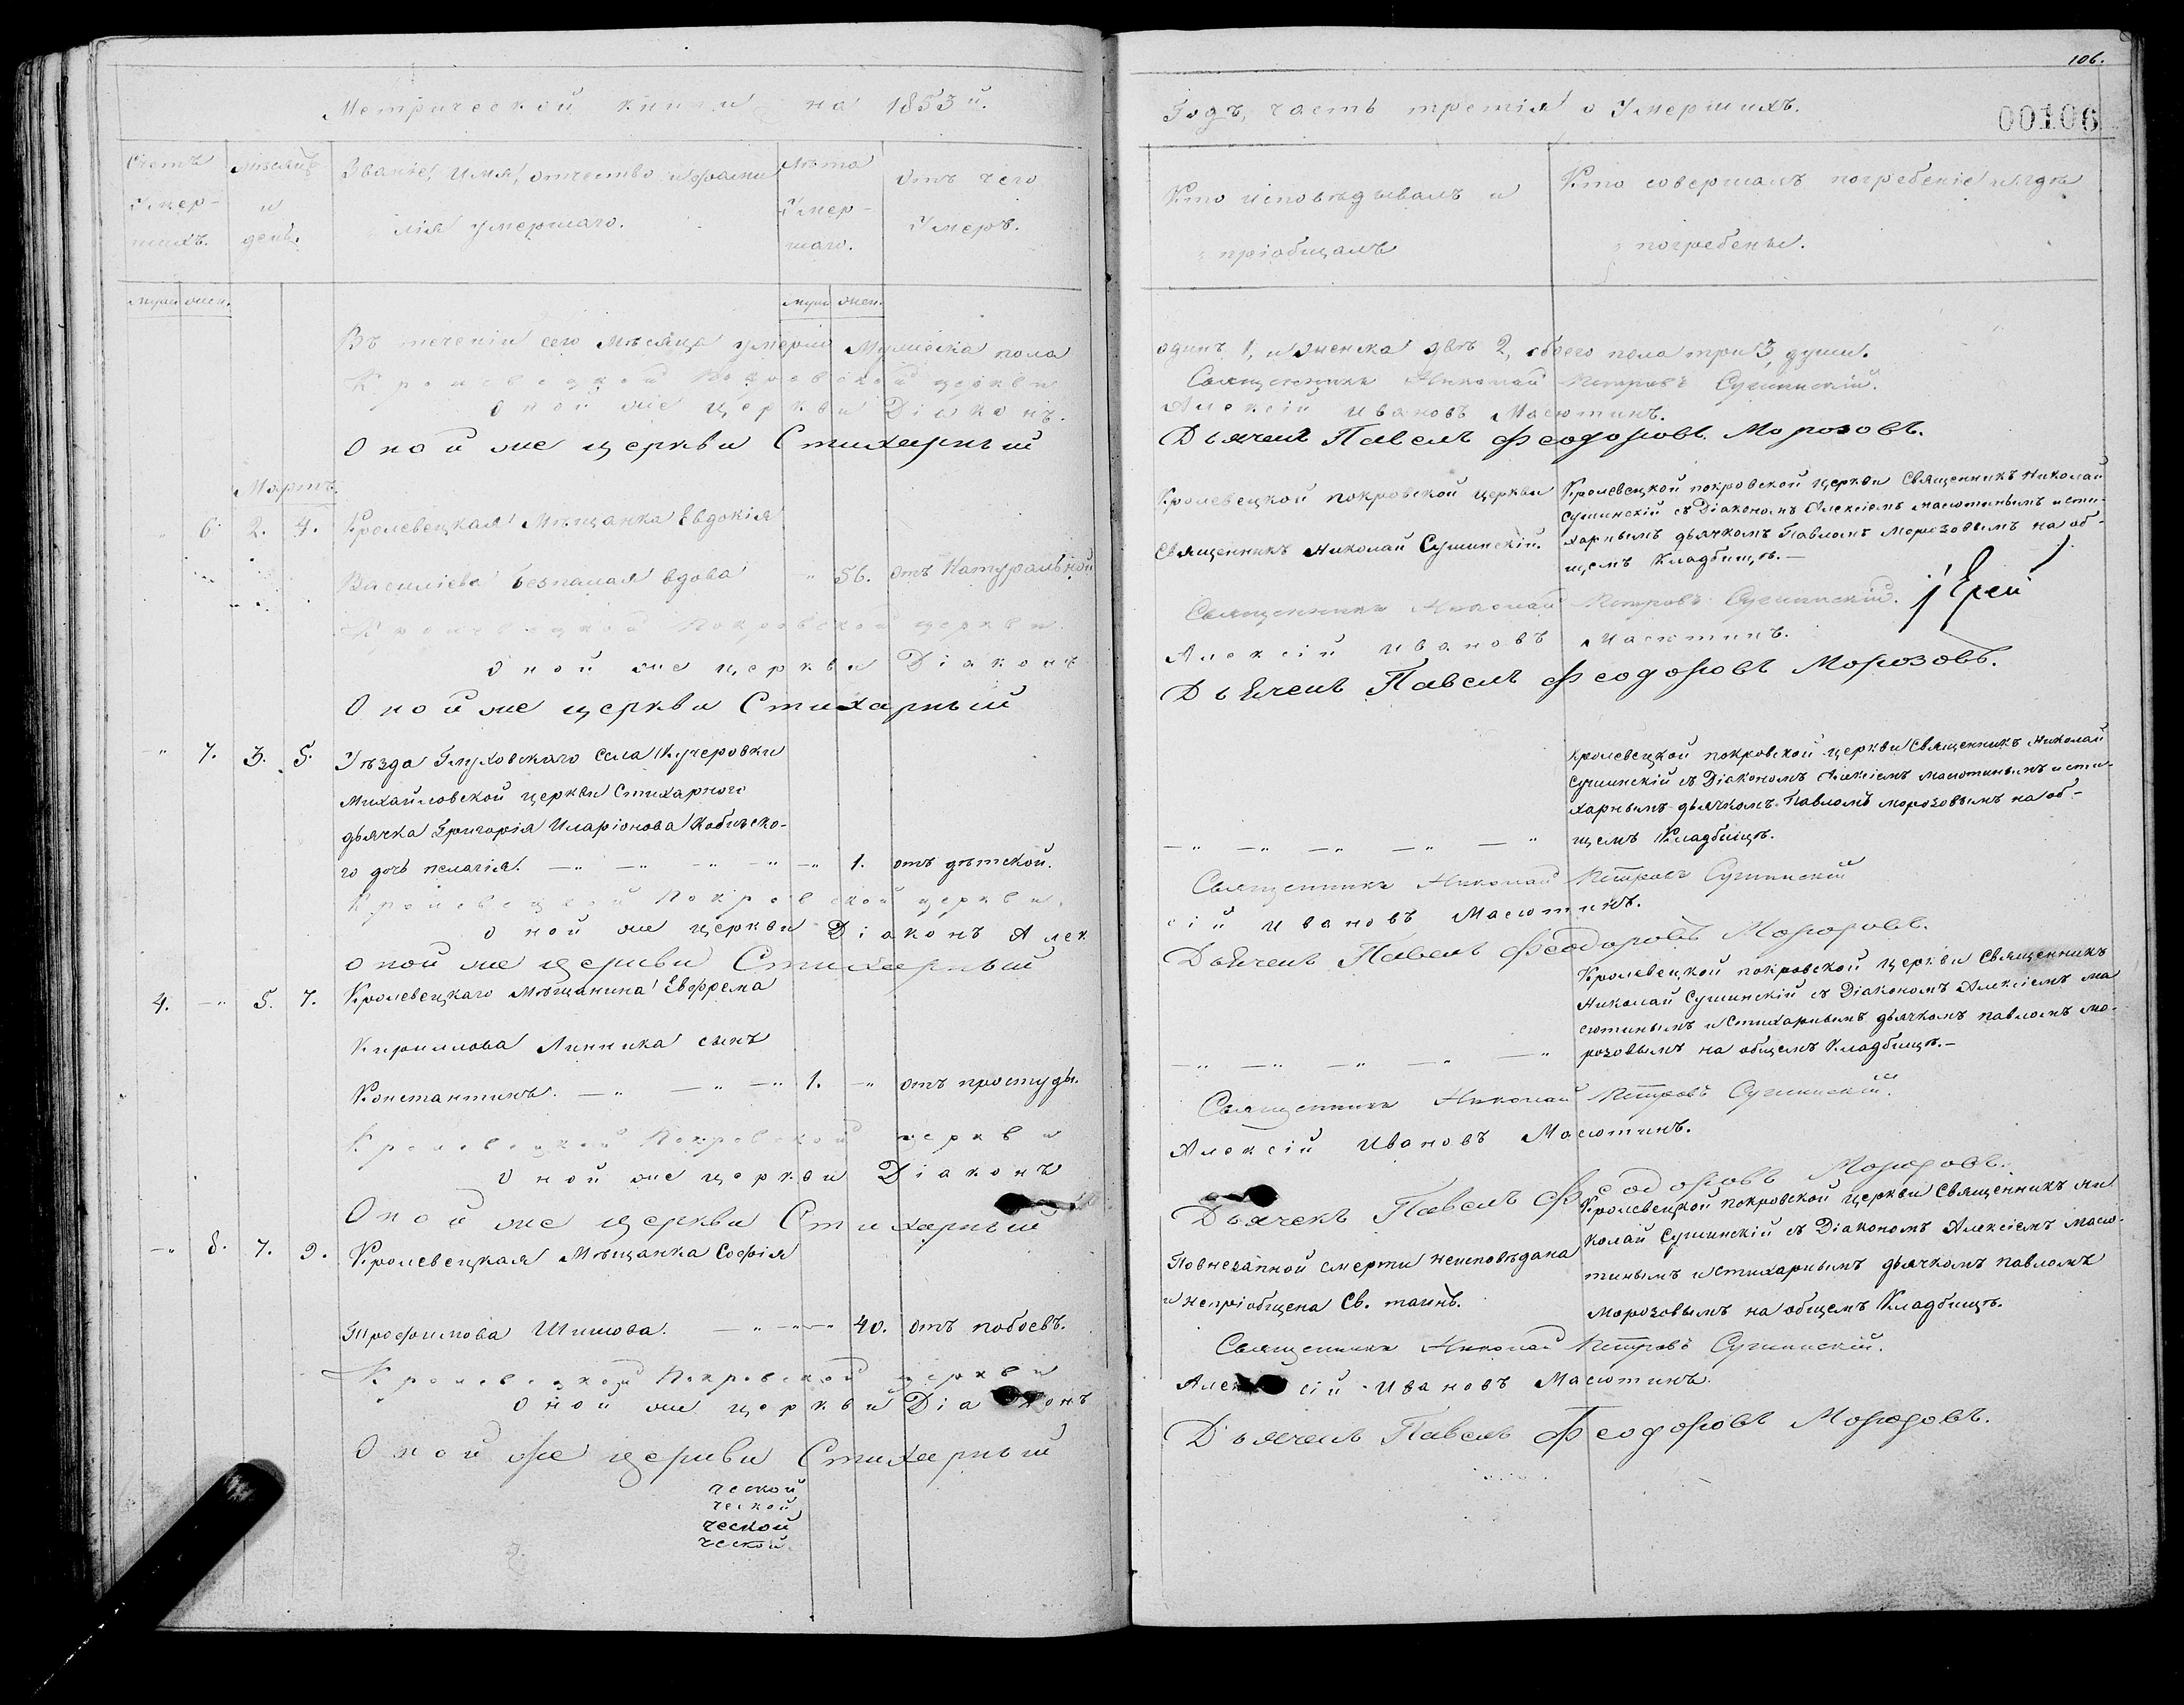 106.
00106
Метрической книги на 1853й.
Годъ, часть третія о Умершихъ.
Счетъ Умер-шихъ.
Мѣсяцъ и день.
Званіе, Имя, отчество и фами
лія умершаго.
Лѣта Умер-шаго.
Отъ чего Умеръ.
Кто исповѣдывалъ и
пріобщалъ
Кто совершалъ погребеніе и гдѣ
погребены.
муж. жен.
муж. жен.
Въ теченіи сего Мѣсяца умерло Мужеска пола
одинъ 1, и женска двѣ 2, обоего пола три 3, души.
Кролевецкой Покровской церкви
Священникъ Николай Петровъ Сушинскій.
Оной же церкви Діаконъ.
Алексій Ивановъ Масютинъ.
Оной же церкви Стихарный
Дьячекъ Павелъ Феодоровъ Морозовъ.
Мартъ.
" 6. 2. 4. Кролевецкая Мѣщанка Евдокія
Василіева Безпалая вдова " 56. отъ Натуральной
Кролевецкой покровской церкви
Священникъ Николай Сушинскій.
Кролевецкой покровской церкви Священникъ Николай
Сушинскій съ Діакономъ Алексіемъ масютинымъ и сти-
харнымъ дьячкомъ Павломъ Морозовымъ на об-
щемъ Кладбищѣ.—
Кролевецкой Покровской церкви
Священникъ Николай Петровъ Сушинскій. іЕрей
Оной же церкви Діаконъ
Алексій Ивановъ Масютинъ.
Оной же церкви Стихарный
Дьячекъ Павелъ Феодоровъ Морозовъ.
—" 7. 3. 5. Уѣзда Глуховскаго Села Кучеровки
Михайловской церкви Стихарного
дьячка Григорія Иларіонова Кобилско-
го дочь пелагія. —" —" —" —" —" 1. отъ дѣтской.
—" —" —" —" —"
Кролевецкой покровской церкви Священникъ Николай
Сушинскій съ Діакономъ Алексіемъ масютинымъ и сти-
харнымъ дьячкомъ Павломъ морозовымъ на об-
щемъ Кладбищѣ.
Кролевецкой Покровской церкви.
Священникъ Николай Петровъ Сушинскій
Оной же церкви Діаконъ Алек
сій Ивановъ Масютинъ.
оной же церкви Стихарный
Дьячекъ Павелъ Феодоровъ Морозовъ.
4. —" 5. 7. Кролевецкаго Мѣщанина Евфрема
Кириллова Линника сынъ
Константинъ. —" —" —" 1. —" отъ простуды.
—" —" —" —" —"
Кролевецкой покровской церкви Священникъ
Николай Сушинскій съ Діакономъ Алексіемъ ма
сютинымъ и Стихарнымъ дьячкомъ павломъ мо-
розовымъ на общемъ Кладбищѣ.—
Кролевецкой Покровской церкви
Священникъ Николай Петровъ Сушинскій.
Оной же церкви Діаконъ
Алексій Ивановъ Масютинъ.
Оной же церкви Стихарный
Дьячекъ Павелъ Феодоровъ Морозовъ.
—" 8. 7. 9. Кролевецкая Мѣщанка Софія
Трофимова Шишова. —" —"— 40. отъ побоевъ.
Повнезапной смерти неисповѣдана
и непріобщена Св. таинъ.
Кролевецкой покровской церкви Священникъ Ни
колай Сушинскій съ Діакономъ Алексіемъ масю-
тинымъ и Стихарнымъ дьячкомъ павломъ
Морозовымъ на общемъ Кладбищѣ.
Кролевецкой Покровской церкви
Священникъ Николай Петровъ Сушинскій.
Оной же церкви Діаконъ
Алексій Ивановъ Масютинъ.
Оной же церкви Стихарный
Дьячекъ Павелъ Феодоровъ Морозовъ.
ческой
ческой
ческой
ческой.